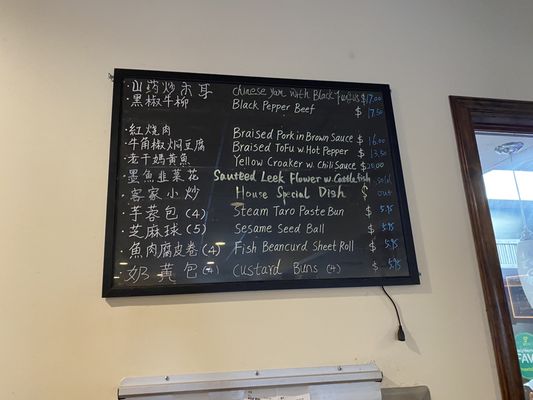 ·山药炒木耳 Chinese Yam with Black Fungus $17.00
·黑椒牛柳 Black Pepper Beef $17.50
·红烧肉 Braised Pork in Brown Sauce $16.00
·牛角椒焖豆腐 Braised Tofu w. Hot Pepper $13.50
·老干妈黄魚 Yellow Croaker w. Chili Sauce $20.00
·墨魚韭菜花 Sauteed Leek Flower w. Cattlefish sold
·客家小炒 House Special Dish $ out
·芋蓉包(4) Steam Taro Paste Bun $5.95
·芝麻球(5) Sesame Seed Ball $5.95
·魚肉腐皮卷(4) Fish Beancurd Sheet Roll $5.95
·奶黄包(4) Custard Buns (4) $5.95
FAV